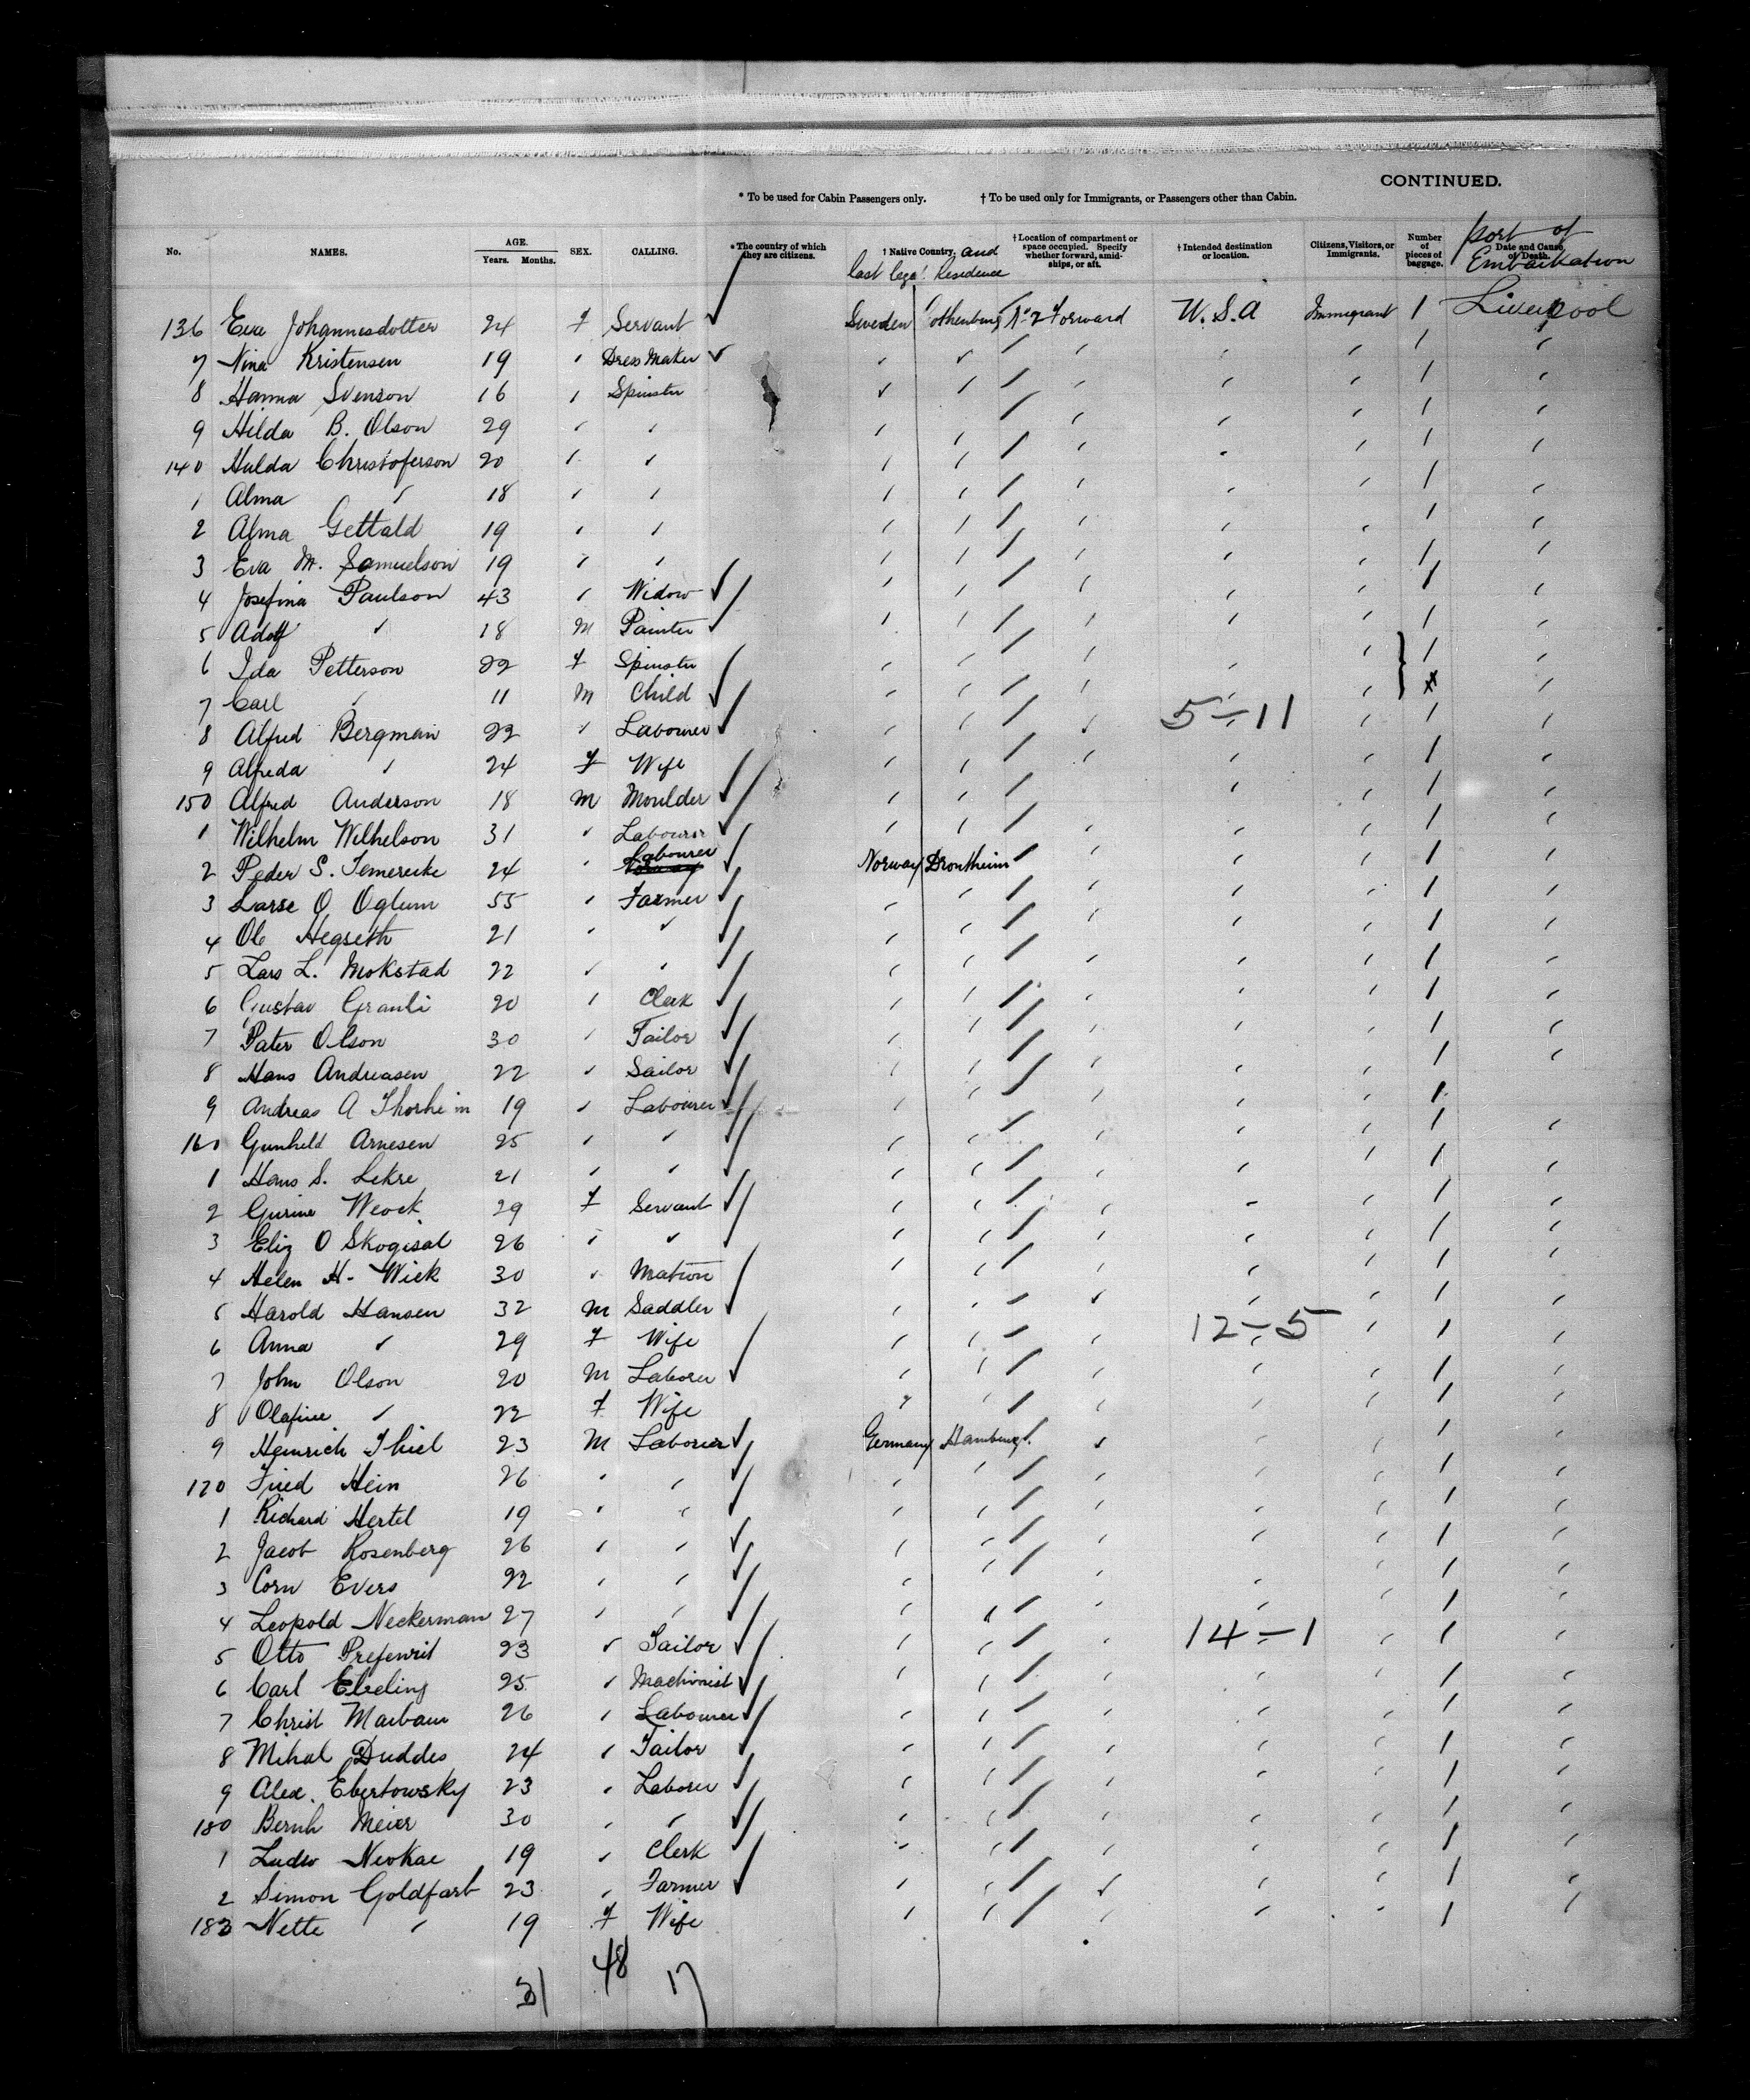 CONTINUED.
* To be used for Cabin Passengers only. † To be used only for Immigrants, or Passengers other than Cabin.
No. NAMES. AGE. Years. Months. SEX. CALLING. * The country of which they are citizens. † Native Country, and last legal Residence † Location of compartment or space occupied. Specify whether forward, amidships, or aft. † Intended destination or location. Citizens, Visitors, or Immigrants. Number of pieces of baggage. Date and Cause of Death. port of Embarkation
136 Eva Johannesdotter 24 F Servant ✓ Sweden Gothenburg No 2 Forward U.S.A Immigrant 1 Liverpool
7 Nina Kristensen 19 " Dress Maker ✓ " " " " " " 1 "
8 Hanna Svenson 16 " Spinster " " " " " " 1 "
9 Hilda B. Olson 29 " " " " " " " " 1 "
140 Hulda Christoferson 20 " " " " " " " " 1 "
1 Alma " 18 " " " " " " " " 1 "
2 Alma Gettald 19 " " " " " " " " 1 "
3 Eva M. Samuelson 19 " " " " " " " " 1 "
4 Josefina Paulson 43 " Widow ✓ " " " " " " 1 "
5 Adolf " 18 M Painter ✓ " " " " " " 1 "
6 Ida Petterson 22 F Spinster " " " " " " 1 "
7 Carl " 11 M Child ✓ " " " " " " "
8 Alfred Bergman 22 " Labourer ✓ " " " " 5-11 " 1 "
9 Alfreda " 24 F Wife " " " " " " 1 "
150 Alfred Anderson 18 M Moulder ✓ " " " " " " 1 "
1 Wilhelm Wilhelson 31 " Labourer ✓ " " " " " " 1 "
2 Peder S. 24 " Labourer ✓ Norway Drontheim " " " " 1 "
3 Larse O Oglum 55 " Farmer ✓ " " " " " " 1 "
4 Ole Hegseth 21 " " ✓ " " " " " " 1 "
5 Lars L. Mokstad 22 " " ✓ " " " " " " 1 "
6 Gustav Granli 20 " Clerk ✓ " " " " " " 1 "
7 Pater Olson 30 " Tailor ✓ " " " " " " 1 "
8 Hans Andreasen 22 " Sailor ✓ " " " " " " 1 "
9 Andreas A Thorheim 19 " Labourer ✓ " " " " " " 1 "
160 Gunhild Arnesen 25 " " ✓ " " " " " " 1 "
1 Hans S. Lekre 21 " " ✓ " " " " " " 1 "
2 Gurine 29 F Servant ✓ " " " " " " 1 "
3 Eliz O 26 " " ✓ " " " " " " 1 "
4 Helen H. Wick 30 " Matron " " " " " " 1 "
5 Harold Hansen 32 M Saddler ✓ " " " " " " 1 "
6 Anna " 29 F Wife " " " " 12-5 " 1 "
7 John Olson 20 M Laborer ✓ " " " " " " 1 "
8 Olafine " 22 F Wife " " " " " " 1 "
9 Heinrich Thiel 23 M Laborer ✓ Germany Hamburg " " " " 1 "
170 Fried Hein 26 " " ✓ " " " " " " 1 "
1 Richard Hertel 19 " " ✓ " " " " " " 1 "
2 Jacob Rosenberg 26 " " ✓ " " " " " " 1 "
3 Corn Evers 22 " " ✓ " " " " " " 1 "
4 Leopold Neckerman 27 " " ✓ " " " " " " 1 "
5 Otto 23 " Tailor ✓ " " " " 14-1 " 1 "
6 Carl Ebeling 25 " Machinist ✓ " " " " " " 1 "
7 Christ Maibaum 26 " Labourer ✓ " " " " " " 1 "
8 Mihal Duddes 24 " Tailor ✓ " " " " " " 1 "
9 Alex. Ebertowsky 23 " Laborer ✓ " " " " " " 1 "
180 Bernh Meier 30 " " ✓ " " " " " " 1 "
1 Ludw 19 " Clerk ✓ " " " " " " 1 "
2 Simon Goldfarb 23 " Farmer ✓ " " " " " " 1 "
183 Nette " 19 F Wife " " " " " " 1 "
31 48 17